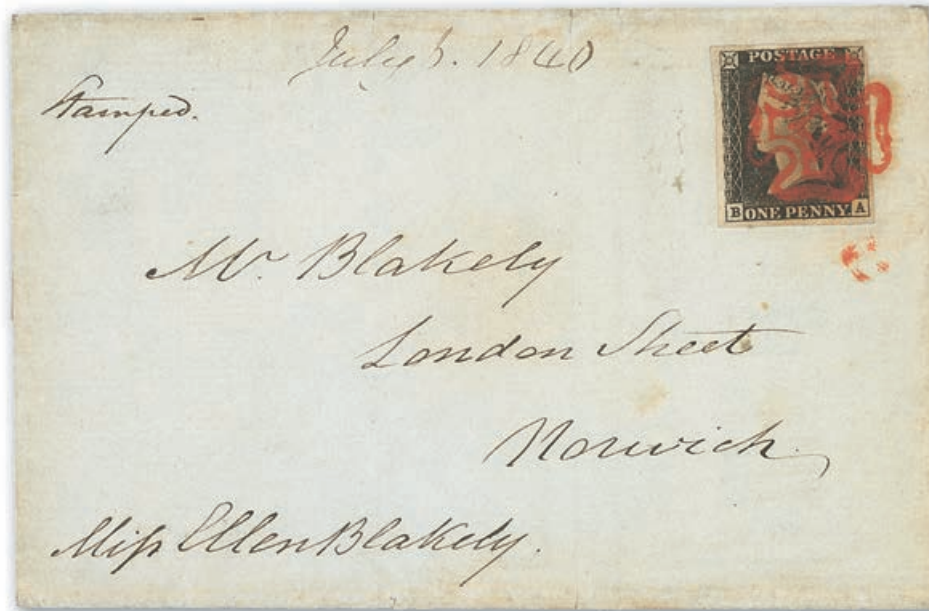 July 1840
Stamped.
POSTAGE
B ONE PENNY A
Mr. Blakely
London Street
Norwich
Miſs Ellen Blakely.